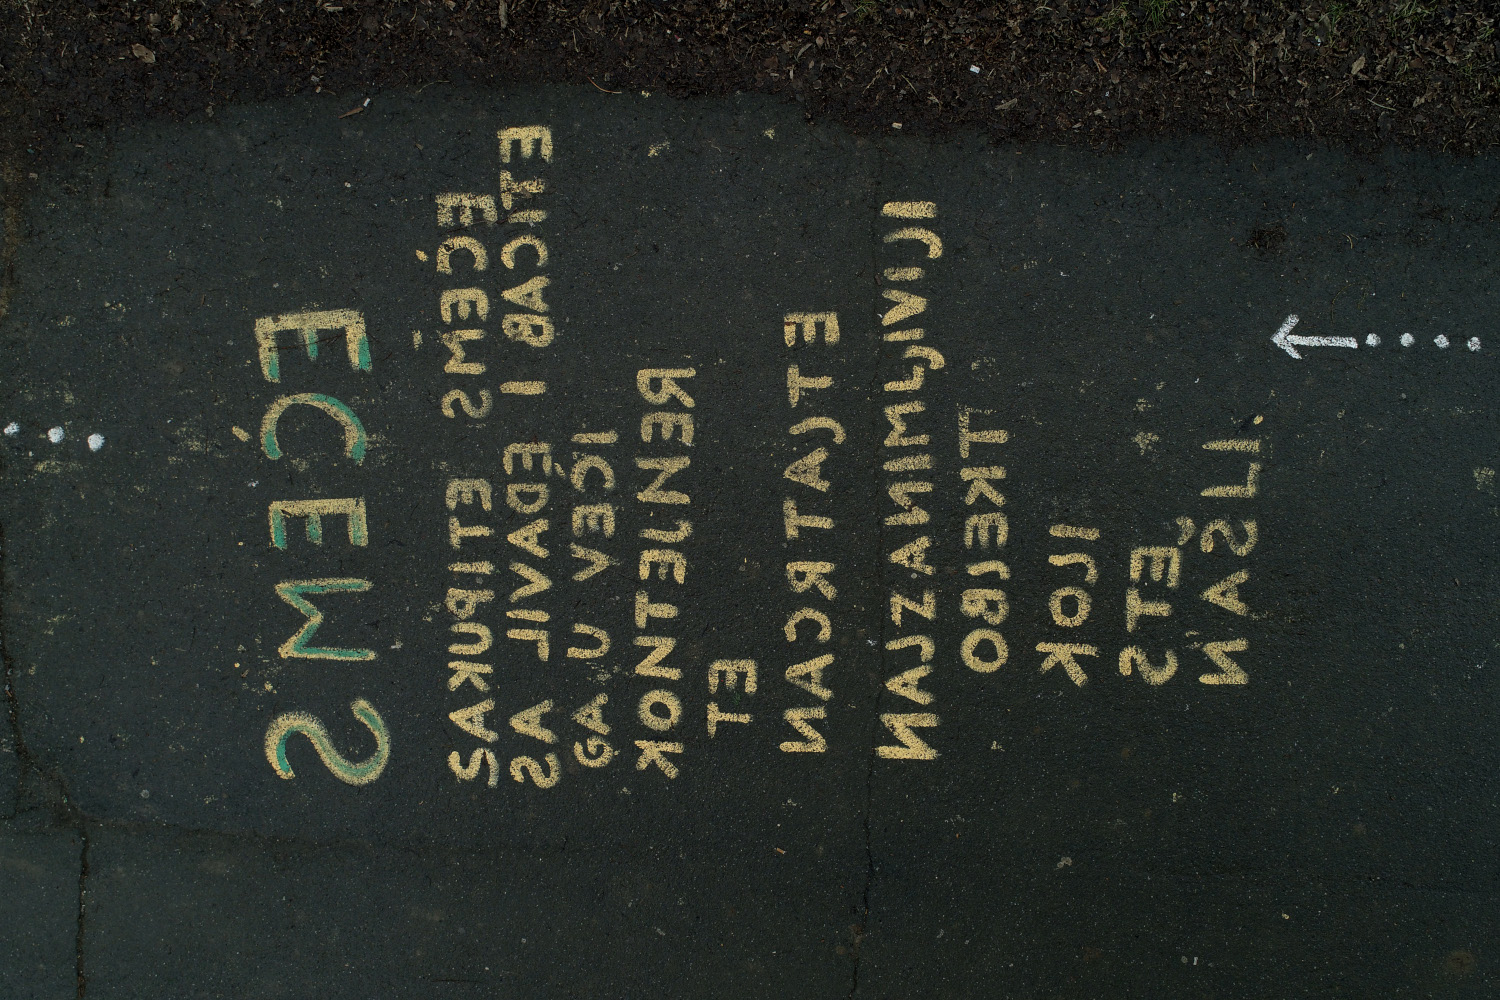 SMEĆE
SAKUPITE SMEĆE
SA LIVADE I BACITE
GA U VEĆI
KONTEJNER
TE
NACRTAJTE
NAJZANIMLJIVIJI
OBJEKT
KOJI
STE
NAŠLI.